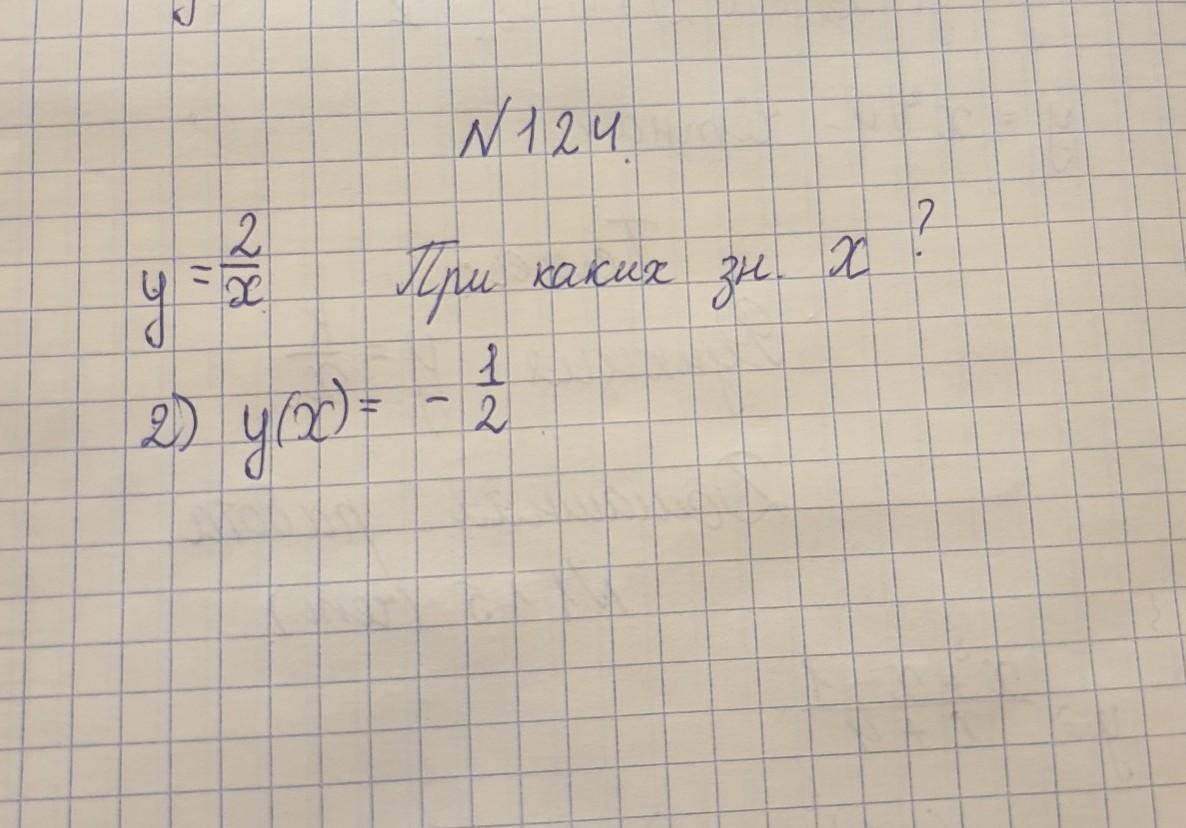 N124.
y = 2/x При каких зн. x ?
2) y(x) = - 1/2